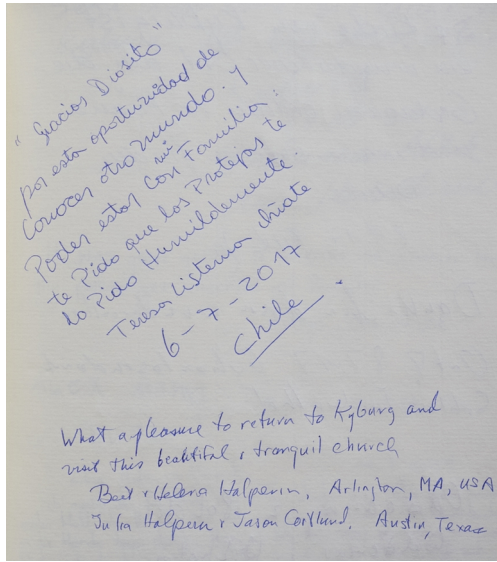 "Gracias Diosito"
por esta oportunidad de
Conocer otro mundo. y
Poder estar con mi Familia:
te Pido que los Protejas te
lo Pido Humildemente.
Teresa
6-7-2017
Chile
What a pleasure to return to Kyburg and
visit this beautiful & tranquil church
Halperin, Arlington, MA, USA
Julia Halperin & Jason Cortlund. Austin, Texas